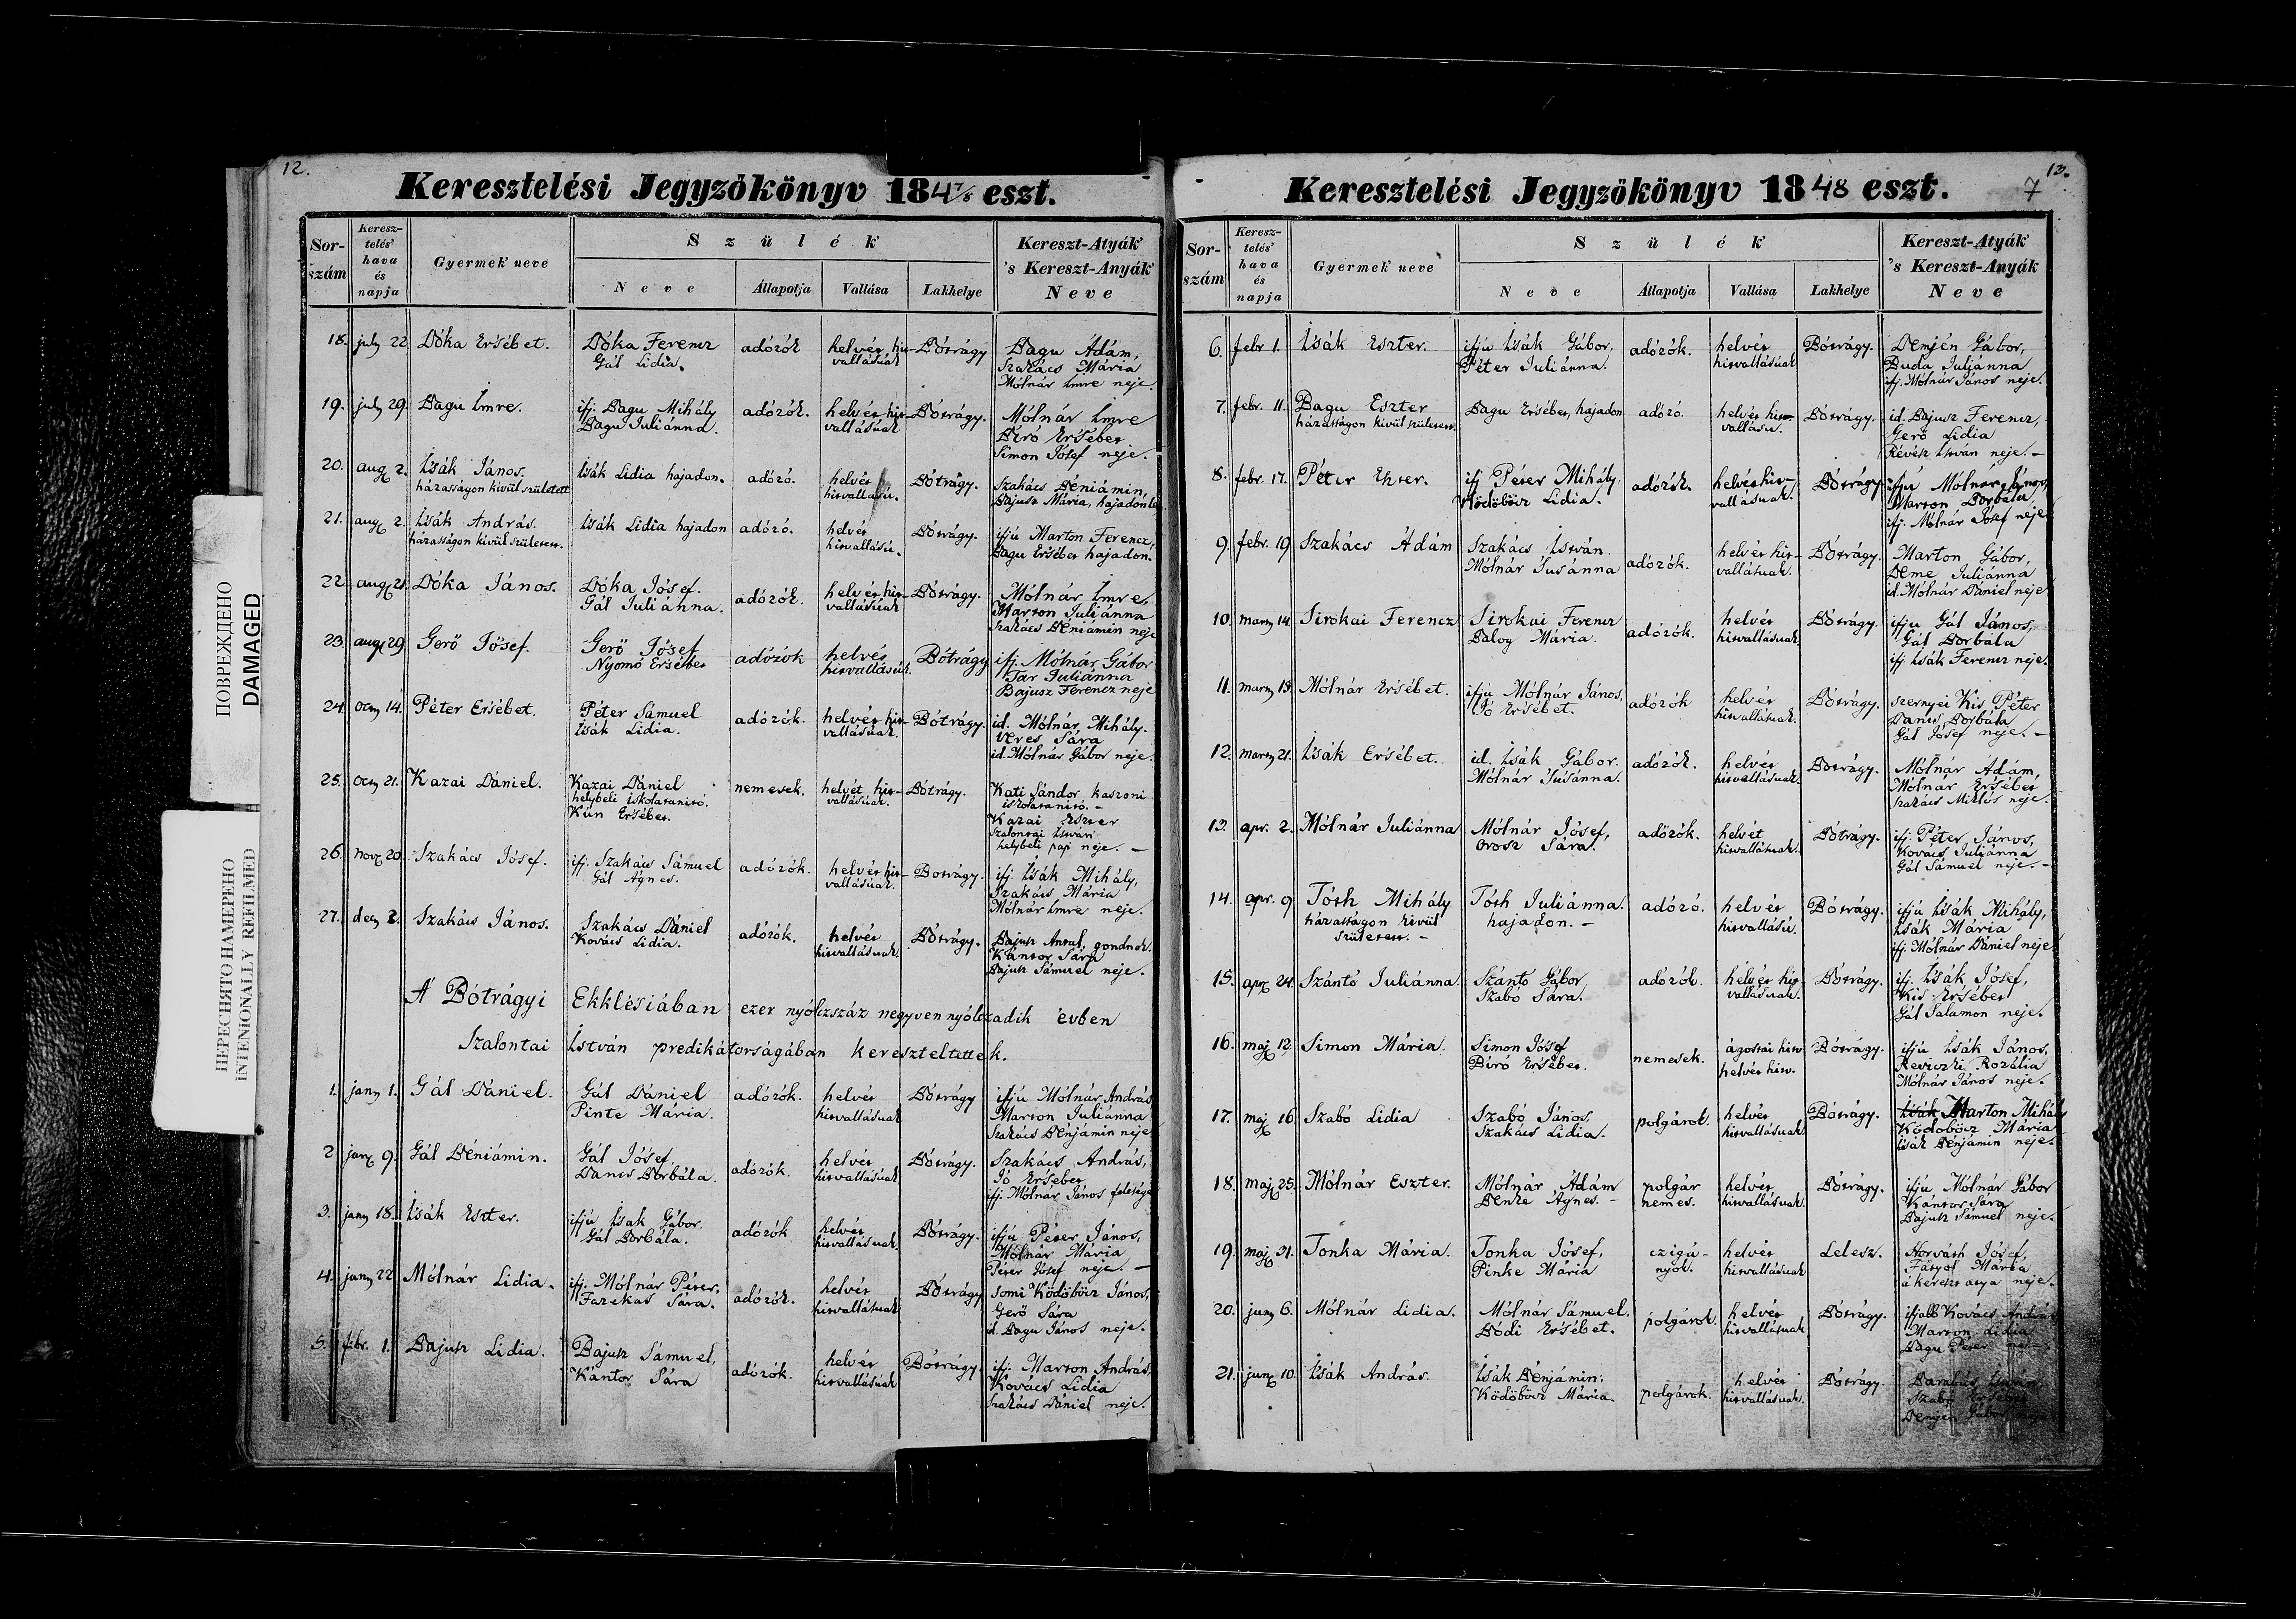 12.
Keresztelési Jegyzőkönyv 184 7/8 eszt.
Sor-szám
Keresz-telés' hava és napja
Gyermek' neve
Szülék'
Neve
Állapotja
Vallása
Lakhelye
Kereszt-Atyák
's Kereszt-Anyák'
Neve
18. july 22. Dóka Ersébet. Dóka Ferencz adózók helvét hit- Bótrágy Bagu Ádám,
Gál Lidia. vallásúak Szakács Mária
Mólnár Imre neje.
19. july 29. Bagu Imre. ifj. Bagu Mihály adózók. helvét hit- Bótrágy. Mólnár Imre
Bagu Juliánna. vallásúak Bíró Ersébet
Simon Jósef neje.
20. aug 2. Isák János. Isák Lidia hajadon. adózó. helvét Bótrágy. Szakács Béniámin,
házasságon kivül született hitvallású. Bajusz Mária, hajadon
21. aug 2. Isák András. Isák Lidia hajadon adózó. helvét Bótrágy. ifjú Marton Ferencz,
házasságon kivül született. hitvallású. Bagu Ersébet hajadon.
22. aug 21. Dóka János. Dóka Jósef. adózók. helvét hit- Bótrágy. Mólnár Imre,
Gál Juliánna. vallásúak Marton Juliánna
Szakács Béniámin neje
23. aug 29. Gerő Jósef. Gerő Jósef adózók helvét Bótrágy ifj. Mólnár Gábor
Nyomó Ersébet hitvallásúak. Tar Juliánna
Bajusz Ferencz neje
24. oct 14. Péter Ersébet. Péter Sámuel adózók. helvét hit- Bótrágy. id. Mólnár Mihály.
Isák Lidia. vallásúak. Veres Sára
id. Mólnár Gábor neje.
25. oct 21. Kazai Dániel. Kazai Dániel nemesek. helvét hit- Bótrágy. Kati Sándor kaszoni
helybeli iskolatanító. vallásúak. iskolatanító. –
Kún Ersébet. Kazai Eszter
Szalontai István
helybeli papi neje. –
26. nov 20. Szakács Jósef. ifj. Szakács Sámuel adózók. helvét hit- Bótrágy. ifj. Isák Mihály,
Gál Ágnes. vallásúak. Szakács Mária
Mólnár Imre neje.
27. dec 2. Szakács János. Szakács Dániel adózók. helvét Bótrágy. Bajusz Antal, gondnok.
Kovács Lidia. hitvallásúak. Kántor Sára
Bajusz Sámuel neje.
A' Bótrágyi Ekklésiában ezer nyólczszáz negyven nyólczadik évben
Szalontai István predikátorságában kereszteltettek.
1. jany 1. Gál Dániel. Gál Dániel adózók. helvét Bótrágy ifjú Mólnár András
Pinte Mária. hitvallásúak Marton Juliánna
Szakács Bénjámin neje
2. jany 9. Gál Béniámin. Gál Jósef, adózók. helvét Bótrágy. Szakács András,
Dancs Borbála. hitvallásúak Jó Ersébet
ifj. Mólnár János felesége
3. jany 18. Isák Eszter. ifjú Isak Gábor. adózók helvét Bótrágy. ifjú Péter János,
Gál Borbála. hitvallásúak. Mólnár Mária
Péter Jósef neje. –
4. jany 22. Mólnár Lidia. ifj. Mólnár Péter, adózók. helvét Bótrágy Somi Ködöböcz János,
Fazekas Sára. hitvallásúak Gerő Sára
id. Bagu János neje.
5. febr. 1. Bajusz Lidia. Bajusz Sámuel, adózók. helvét Bótrágy. ifj. Marton András,
Kántor Sára hitvallásúak Kovács Lidia
Szakács Dániel neje.
13.
7
Keresztelési Jegyzőkönyv 1848 eszt.
Sor-szám
Keresz-telés' hava és napja
Gyermek' neve
Szülék'
Neve
Állapotja
Vallása
Lakhelye
Kereszt-Atyák
's Kereszt-Anyák
Neve
6. febr 1. Isák Eszter. ifjú Isák Gábor, adózók. helvét Bótrágy. Demjén Gábor,
Péter Juliánna. hitvallásúak Buda Juliánna
ifj. Mólnár János neje.
7. febr. 11. Bagu Eszter Bagu Ersébet, hajadon adózó. helvét hit- Bótrágy. id. Bajusz Ferencz,
házasságon kivül született. vallású. Gerő Lidia
Révész István neje. –
8. febr. 17. Péter Eszter. ifj Péter Mihály. adózók. helvét hit- Bótrágy ifjú Mólnár János,
Ködöböcz Lidia. vallásúak. Marton Borbála,
ifj. Mólnár Jósef neje
9. febr. 19. Szakács Ádám Szakács István. adózók. helvét hit- Bótrágy. Marton Gábor,
Mólnár Susánna vallásúak. Deme Juliánna
id. Mólnár Dániel neje
10. marty 14. Sirokai Ferencz Sirokai Ferencz adózók. helvét Bótrágy. ifju Gál János,
Balog Mária. hitvallásúak. Gál Borbála
ifj. Isák Ferencz neje.
11. marty 15. Mólnár Ersébet. ifjú Mólnár János, adózók helvét Bótrágy. szernyei Kis Péter
Jó Ersébet. hitvallásúak. Dancs Borbála
Gál Jósef neje. –
12. marty 21. Isák Ersébet. id. Isák Gábor. adózók. helvét Bótrágy. Mólnár Ádám,
Mólnár Susánna. hitvallásúak. Mólnár Ersébet
Szakács Miklós neje.
13. apr. 2. Mólnár Juliánna Mólnár Jósef, adózók. helvét Bótrágy. ifj. Péter János,
Orosz Sára. hitvallásúak. Kovács Juliánna
Gál Sámuel neje. –
14. apr. 9 Tóth Mihály Tóth Juliánna. adózó. helvét Bótrágy. ifjú Isák Mihály,
házasságon kivül hajadon. – hitvallású. Isák Mária
született. – ifj. Mólnár Dániel neje
15. apr. 24. Szántó Juliánna. Szántó Gábor adózók. helvét hit- Bótrágy. ifj. Isák Jósef,
Szabó Sára. vallásúak. Kis Ersébet
Gál Salamon neje.
16. maj 12. Simon Mária. Simon Jósef nemesek. ágostai hitv Bótrágy. ifjú Isák János,
Bíró Ersébet. helvét hitv. Reviczki Rozália
Mólnár János neje.
17. maj 16. Szabó Lidia Szabó János. polgárok. helvét Bótrágy. Isák Marton Mihály
Szakács Lidia. hitvallásúak. Ködöböcz Mária
Isák Benjámin neje.
18. maj 25. Mólnár Eszter. Mólnár Ádám polgár helvét Bótrágy. ifjú Mólnár Gábor
Benke Ágnes. – nemes. hitvallásúak. Kántor Sára
Bajusz Sámuel neje.
19. maj 31. Tonka Mária. Tonka Jósef, czigá- helvét Lelesz. Horváth Jósef,
Pinke Mária nyok. hitvallásúak Mária
a kereszt atya neje.
20. juny 6. Mólnár Lidia. Mólnár Sámuel, polgárok. helvét Bótrágy. ifjabb Kovács András
Bódi Ersébet. hitvallásúak Marton Lidia
Bagu Péter
21. juny 10. Isák András. Isák Bénjámin. polgárok. helvét Bótrágy.
Ködöböcz Mária. hitvallásúak. Szabó
Demjén Gábor
ПОВРЕЖДЕНО
DAMAGED
ПЕРЕСНЯТО НАМЕРЕНО
INTENIONALLY REFILMED